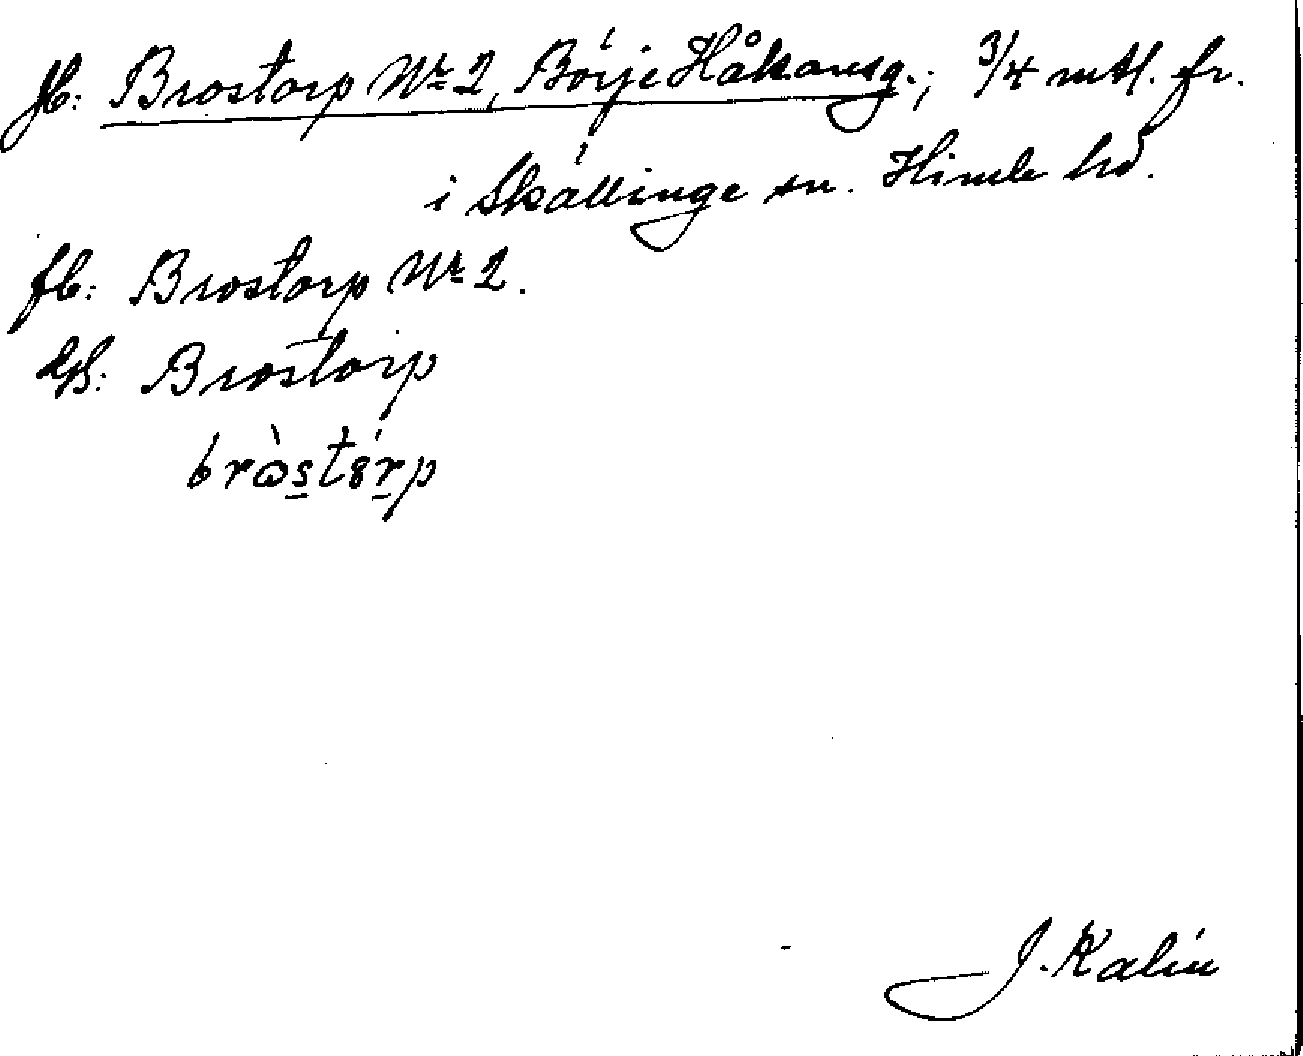 Jb: Brostorp Nr 2, Börje Håkansg.; 3/4 mtl. fr.
i Skällinge sn. Himle hd.
fb: Brostorp Nr 2.
Brostorp
J. Kalén